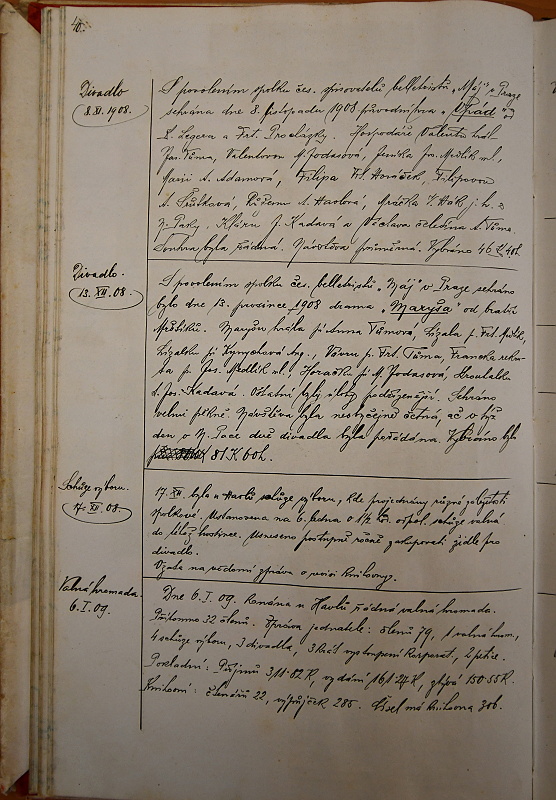 40.
Divadlo
8. XI. 1908.
S povolením spolku čes. spisovatelů belletristů „Máj" v Praze
sehrána dne 8. listopadu 1908 „Upád" od
L. Legera a Frt. Procházky. Hospodáře Valentu hrál
Jos. Tůma, Valentovou M. Jodasová, Jos. Mědlík ml.,
Marii A. Adamová, Filipa Frt. Horáček, Filipovou
A. Havlová, j. h.
J. Kadavá a A. Tůma.
Souhra byla Návštěva průměrná. Vybráno 46 K 40 h.
Divadlo.
13. XII. 08.
S povolením spolku čes. belletristů „Máj" v Praze sehráno
bylo dne 13. prosince 1908 drama „Maryša" od bratří
Mrštíků. Maryšu hrála sl. Anna Tůmová, Lízala p. Frt. Mědlík,
Lízalku Vávru p. Frt. Tůma, Francka rekru-
ta p. Jos. Mědlík ml., Horačku M. Jodasová, Strouhalku
Jos. Kadavá. Ostatní byly úlohy podřízenější. Sehráno
velmi pěkně. Návštěva byla neobyčejně četná, ač v týž
den v N. Pace dvě divadla byla pořádána. Vybráno bylo
81 K 60 h.
Schůze výboru.
17. XII. 08.
17. XII. byla u Havlů schůze výboru, kde projednány různé záležitosti
spolkové. Ustanovena na 6. ledna o 1/2 odpol. schůze valná
do téhož hostince. Usneseno postupně ročně zakupovati židle pro
divadlo.
Vzata na vědomí zpráva o revisi knihovny.
Valná hromada
6. I. 09.
Dne 6. I. 09. konána u Havlů řádná valná hromada.
Přítomno 32 členů. Zpráva jednatele: členů 79, 1 valná hrom.,
4 schůze výboru, 3 divadla, 3 krát vystoupení
Pokladní: Příjmů 311·82 K, vydání 161·24 K, zbývá 150·55 K.
Knihovní: čtenářů 22, výpůjček 285. Čísel má knihovna 306.